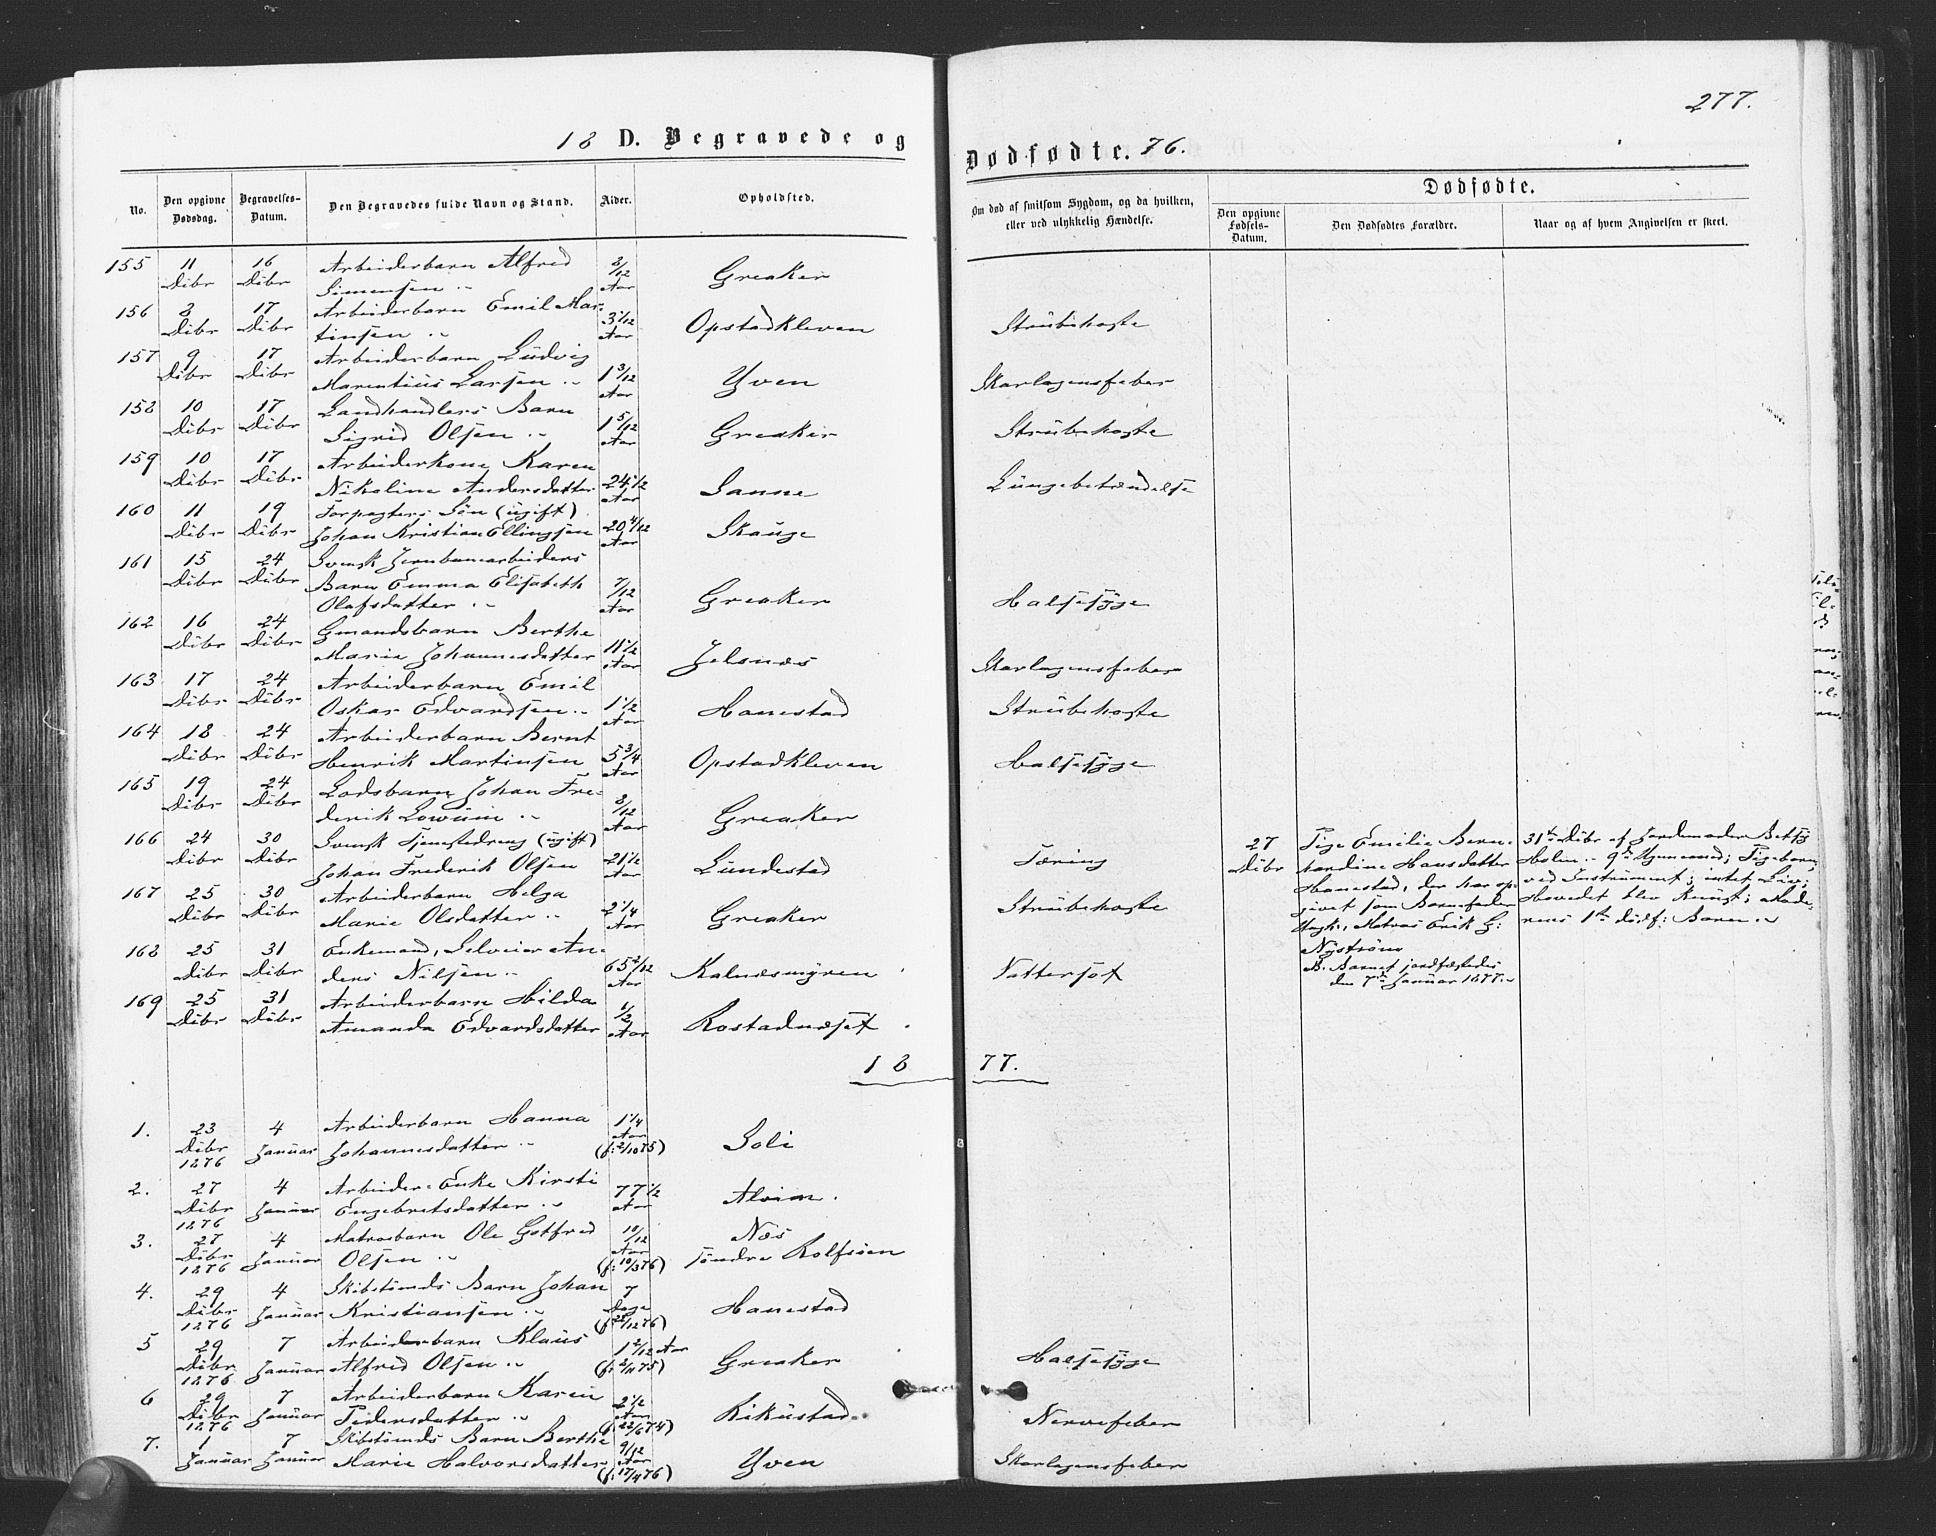 277.
18 D. Begravede og Dødfødte. 76.
No.
Den opgivne Dødsdag.
Begravelses-Datum.
Den Begravedes fulde Navn og Stand.
Alder.
Opholdsted.
Om død af smitsom Sygdom, og da hvilken, eller ved ulykkelig Hændelse.
Dødfødte.
Den opgivne Fødsels-Datum.
Den Dødfødtes Forældre.
Naar og af hvem Angivelsen er skeet.
155 11 Dibr 16 Dibr Arbeiderbarn Alfred Simensen 8/12 Aar Greaker
156 8 Dibr 17 Dibr Arbeiderbarn Emil Martinsen 3 1/12 Aar Opstadkleven Strubehoste
157 9 Dibr 17 Dibr Arbeiderbarn Ludvig Marentius Larsen 1 3/12 Aar Yven Skarlagensfeber
158 10 Dibr 17 Dibr Landhandlers Barn Sigrid Olsen 1 5/12 Aar Greaker Strubehoste
159 10 Dibr 17 Dibr Arbeiderkone Karen Nikoline Andersdatter 24 1/2 Aar Sanne Lungebetændelse
160 11 Dibr 19 Dibr Forpagters Søn (ugift) Johan Kristian Ellingsen 20 4/12 Aar Skauge
161 15 Dibr 24 Dibr Svensk Jernbanearbeiders Barn Emma Elisabeth Olafsdatter 7/12 Aar Greaker Halssyge
162 16 Dibr 24 Dibr Gmandsbarn Berthe Marie Johannesdatter 11 1/2 Aar Jelsnæs Skarlagensfeber
163 17 Dibr 24 Dibr Arbeiderbarn Emil Oskar Edvardsen 1 1/2 Aar Hanestad Strubehoste
164 18 Dibr 24 Dibr Arbeiderbarn Bernt Henrik Martinsen 5 3/4 Aar Opstadkleven Halssyge
165 19 Dibr 24 Dibr Lodsbarn Johan Frederik Lowum 8/12 Aar Greaker
166 24 Dibr 30 Dibr Svensk Tjenestedreng (ugift) Johan Frederik Olsen 21 1/2 Aar Lundestad Tæring
27 Dibr
Pige Emilie Bernhardine Hansdatter
Hanestad, der har opgivet som Barnefader
Ungk. Matros Erik G:
Nyström
B. Barnet jordfæstedes
den 7de Januar 1877.
31te Dibr af Jordemoder Betty
Holm. 9de ; Pigebarn,
ved Instrument; intet Liv;
Hovedet blev knust; Moderens 1ste dødf: Barn
167 25 Dibr 30 Dibr Arbeiderbarn Helga Marie Olsdatter 2 1/4 Aar Greaker Strubehoste
168 25 Dibr 31 Dibr Enkemand, Selveier Anders Nilsen 65 2/12 Aar Kalnæsmyren Vattersot
169 25 Dibr 31 Dibr Arbeiderbarn Hilda Amanda Edvardsdatter 1/2 Aar Rostadnæset
18 77.
1. 23 Dibr 1876 4 Januar Arbeiderbarn Hanna Johannesdatter 1 1/4 Aar (f: 2/10 75) Soli
2. 27 Dibr 1876 4 Januar Arbeider-Enke Kirsti Engebretsdatter 77 1/2 Aar Alvim.
3. 27 Dibr 1876 4 Januar Matrosbarn Ole Gotfred Olsen 10/12 Aar (f: 10/3 76) Næs Søndre Rolfsøen
4. 29 Dibr 1876 4 Januar Skibstømds Barn Johan Kristiansen 7 Dage (f: 22/12 76) Hanestad
5 29 Dibr 1876 7 Januar Arbeiderbarn Klaus Alfred Olsen 1 2/12 Aar (f: 2/11 75) Greaker Halssyge
6 29 Dibr 1876 7 Januar Arbeiderbarn Karen Pedersdatter 2 1/2 Aar (f: 22/6 74) Kikustad Nervefeber
7. 1 Januar 7 Januar Skibstømds Barn Berthe Marie Halvorsdatter 9/12 Aar (f: 17/4 76) Yven Skarlagensfeber